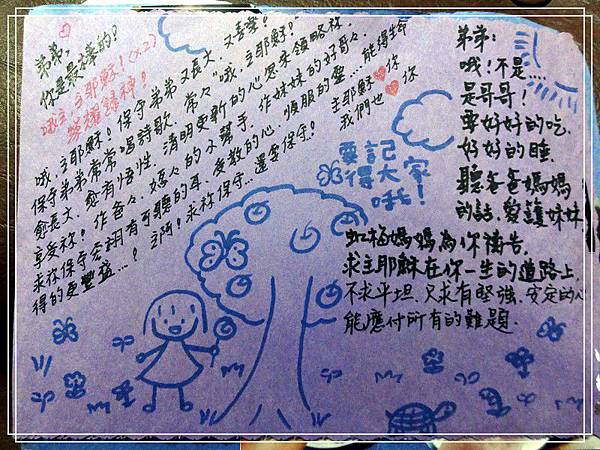 弟弟,
你是最棒的?
哦, 主耶穌! (x2)
榮耀歸神!
哦, 主耶穌! 保守弟弟又長大, 又喜樂!
保守弟弟常常唱詩歌, 常々 "哦, 主耶穌!"
愈長大, 愈有悟性, 清明更新的心思來領略祢,
享受祢! 作爸々、媽々的小幫手, 作妹妹的好哥々,
求祢保守弟弟有可聽的耳, 受教的心, 順服的靈.... 能得生命
得的更豐盛...? 主阿! 求祢保守...還要保守!
主耶穌♡你
我們也♡你
要記
得大家
哦!
弟弟:
哦!不是....
是哥哥!
要好好的吃,
好好的睡,
聽爸爸媽媽
的話, 愛護妹妹
虹梅媽媽為你禱告,
求主耶穌在你一生的道路上,
不求平坦, 只求有堅強、安定的心
能應付所有的難題.